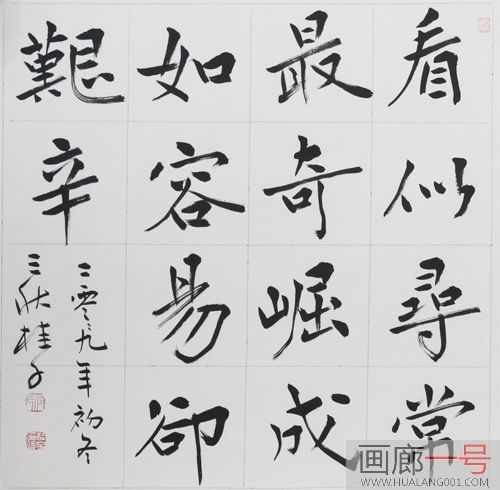 看似尋常
最奇崛成
如容易卻
艱辛
二零〻九年初冬
三秋桂子
画廊一号
WWW.HUALANG001.COM